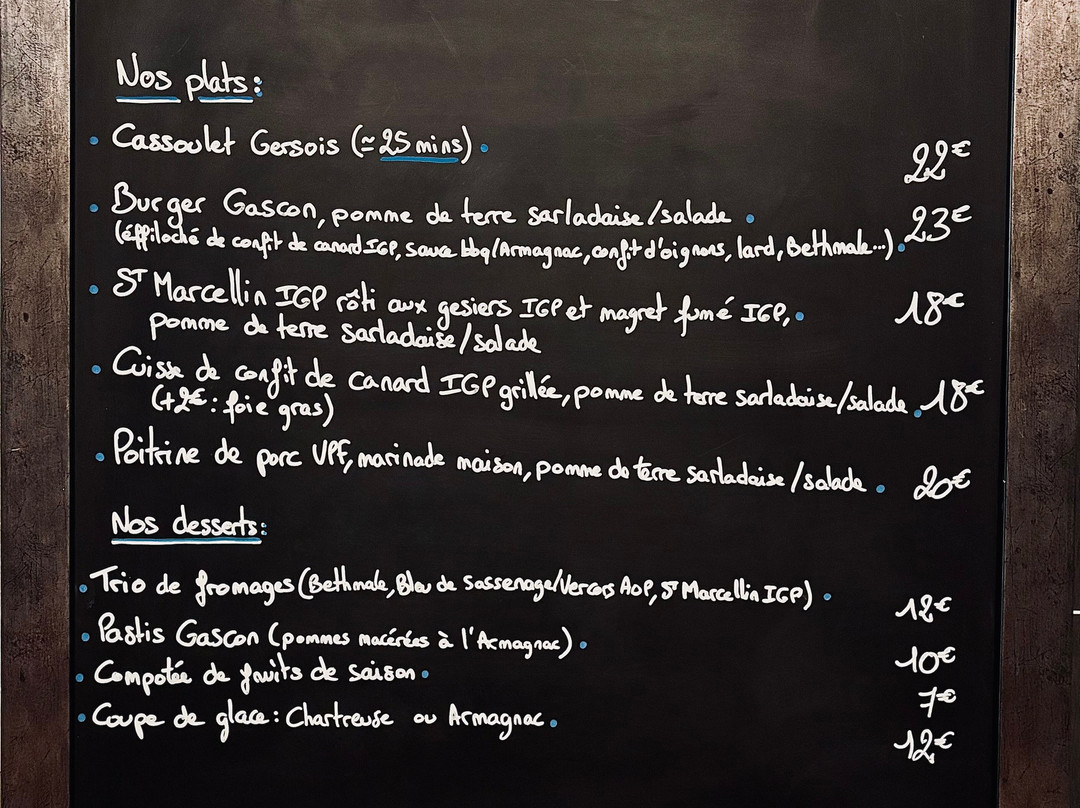 Nos plats:
• Cassoulet Gersois (≃ 25 mins). 22€
• Burger Gascon, pomme de terre sarladaise/salade. 23€
(éffiloché de confit de canard IGP, sauce bbq/Armagnac, confit d'oignons, lard, Bethmale...).
• St Marcellin IGP rôti aux gesiers IGP et magret fumé IGP,. 18€
pomme de terre sarladaise/salade
• Cuisse de confit de canard IGP grillée, pomme de terre sarladaise/salade. 18€
(+2€: foie gras)
• Poitrine de porc VPF, marinade maison, pomme de terre sarladaise/salade. 20€
Nos desserts:
• Trio de fromages (Bethmale, Bleu de Sassenage/Vercors AOP, St Marcellin IGP). 12€
• Pastis Gascon (pommes macérées à l'Armagnac). 10€
• Compotée de fruits de saison. 7€
• Coupe de glace: Chartreuse ou Armagnac. 12€